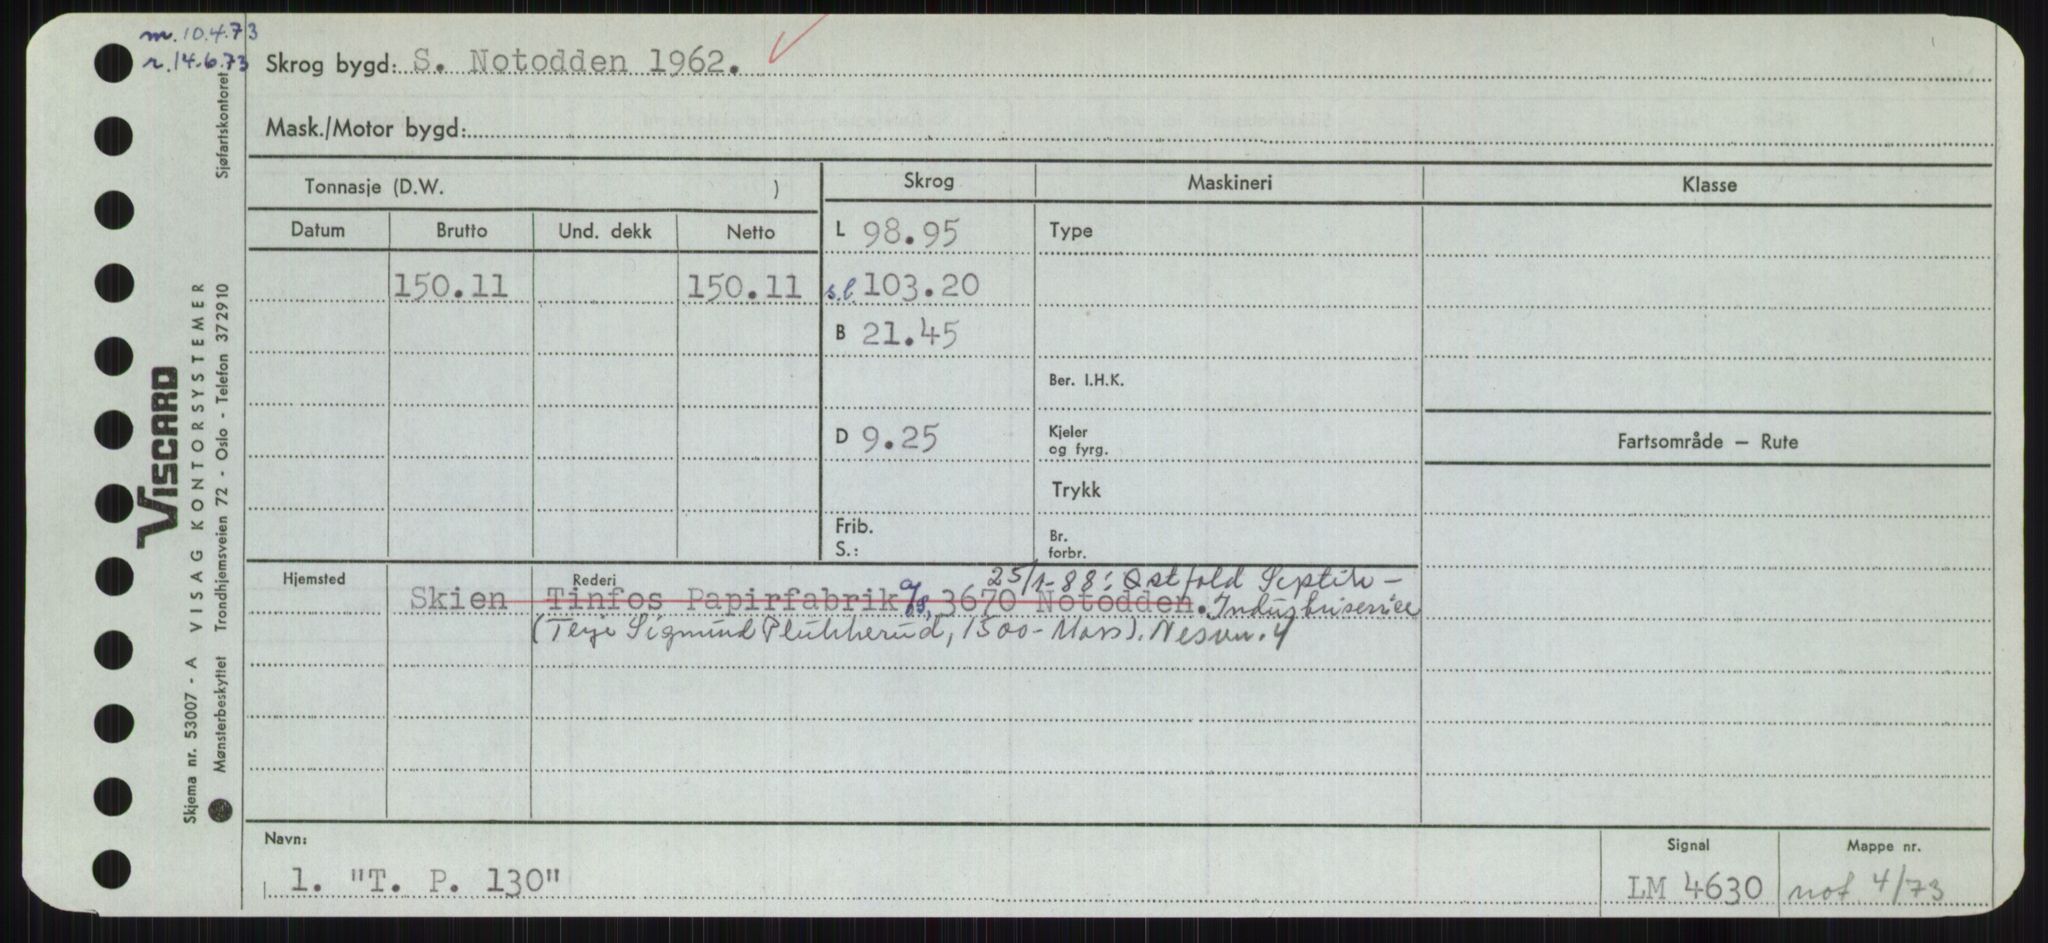 m. 10.4.73
r. 14.6.73
Skrog bygd: S. Notodden 1962.
Mask./Motor bygd:
Tonnasje (D.W. )
Skrog
Maskineri
Klasse
Datum
Brutto
Und. dekk
Netto
L 98.95
Type
150.11
150.11
s.l. 103.20
B 21.45
Ber. I.H.K.
D 9.25
Kjeler
og fyrg.
Fartsområde – Rute
Trykk
Frib.
S.:
Br.
forbr.
Hjemsted
Rederi
25/1-88: Østfold Septik-
Skien Tinfos Papirfabrik A/S, 3670 Notodden. Industriservice
(Terje Sigmund Plukkerud, 1500-Moss). Nesvn. 4
Navn:
1. "T. P. 130"
Signal
LM 4630
Mappe nr.
not 4/73
VISCARD
Skjema nr. 53007 - A VISAG KONTORSYSTEMER
Mønsterbeskyttet Trondhjemsveien 72 - Oslo - Telefon 372910 Sjøfartskontoret